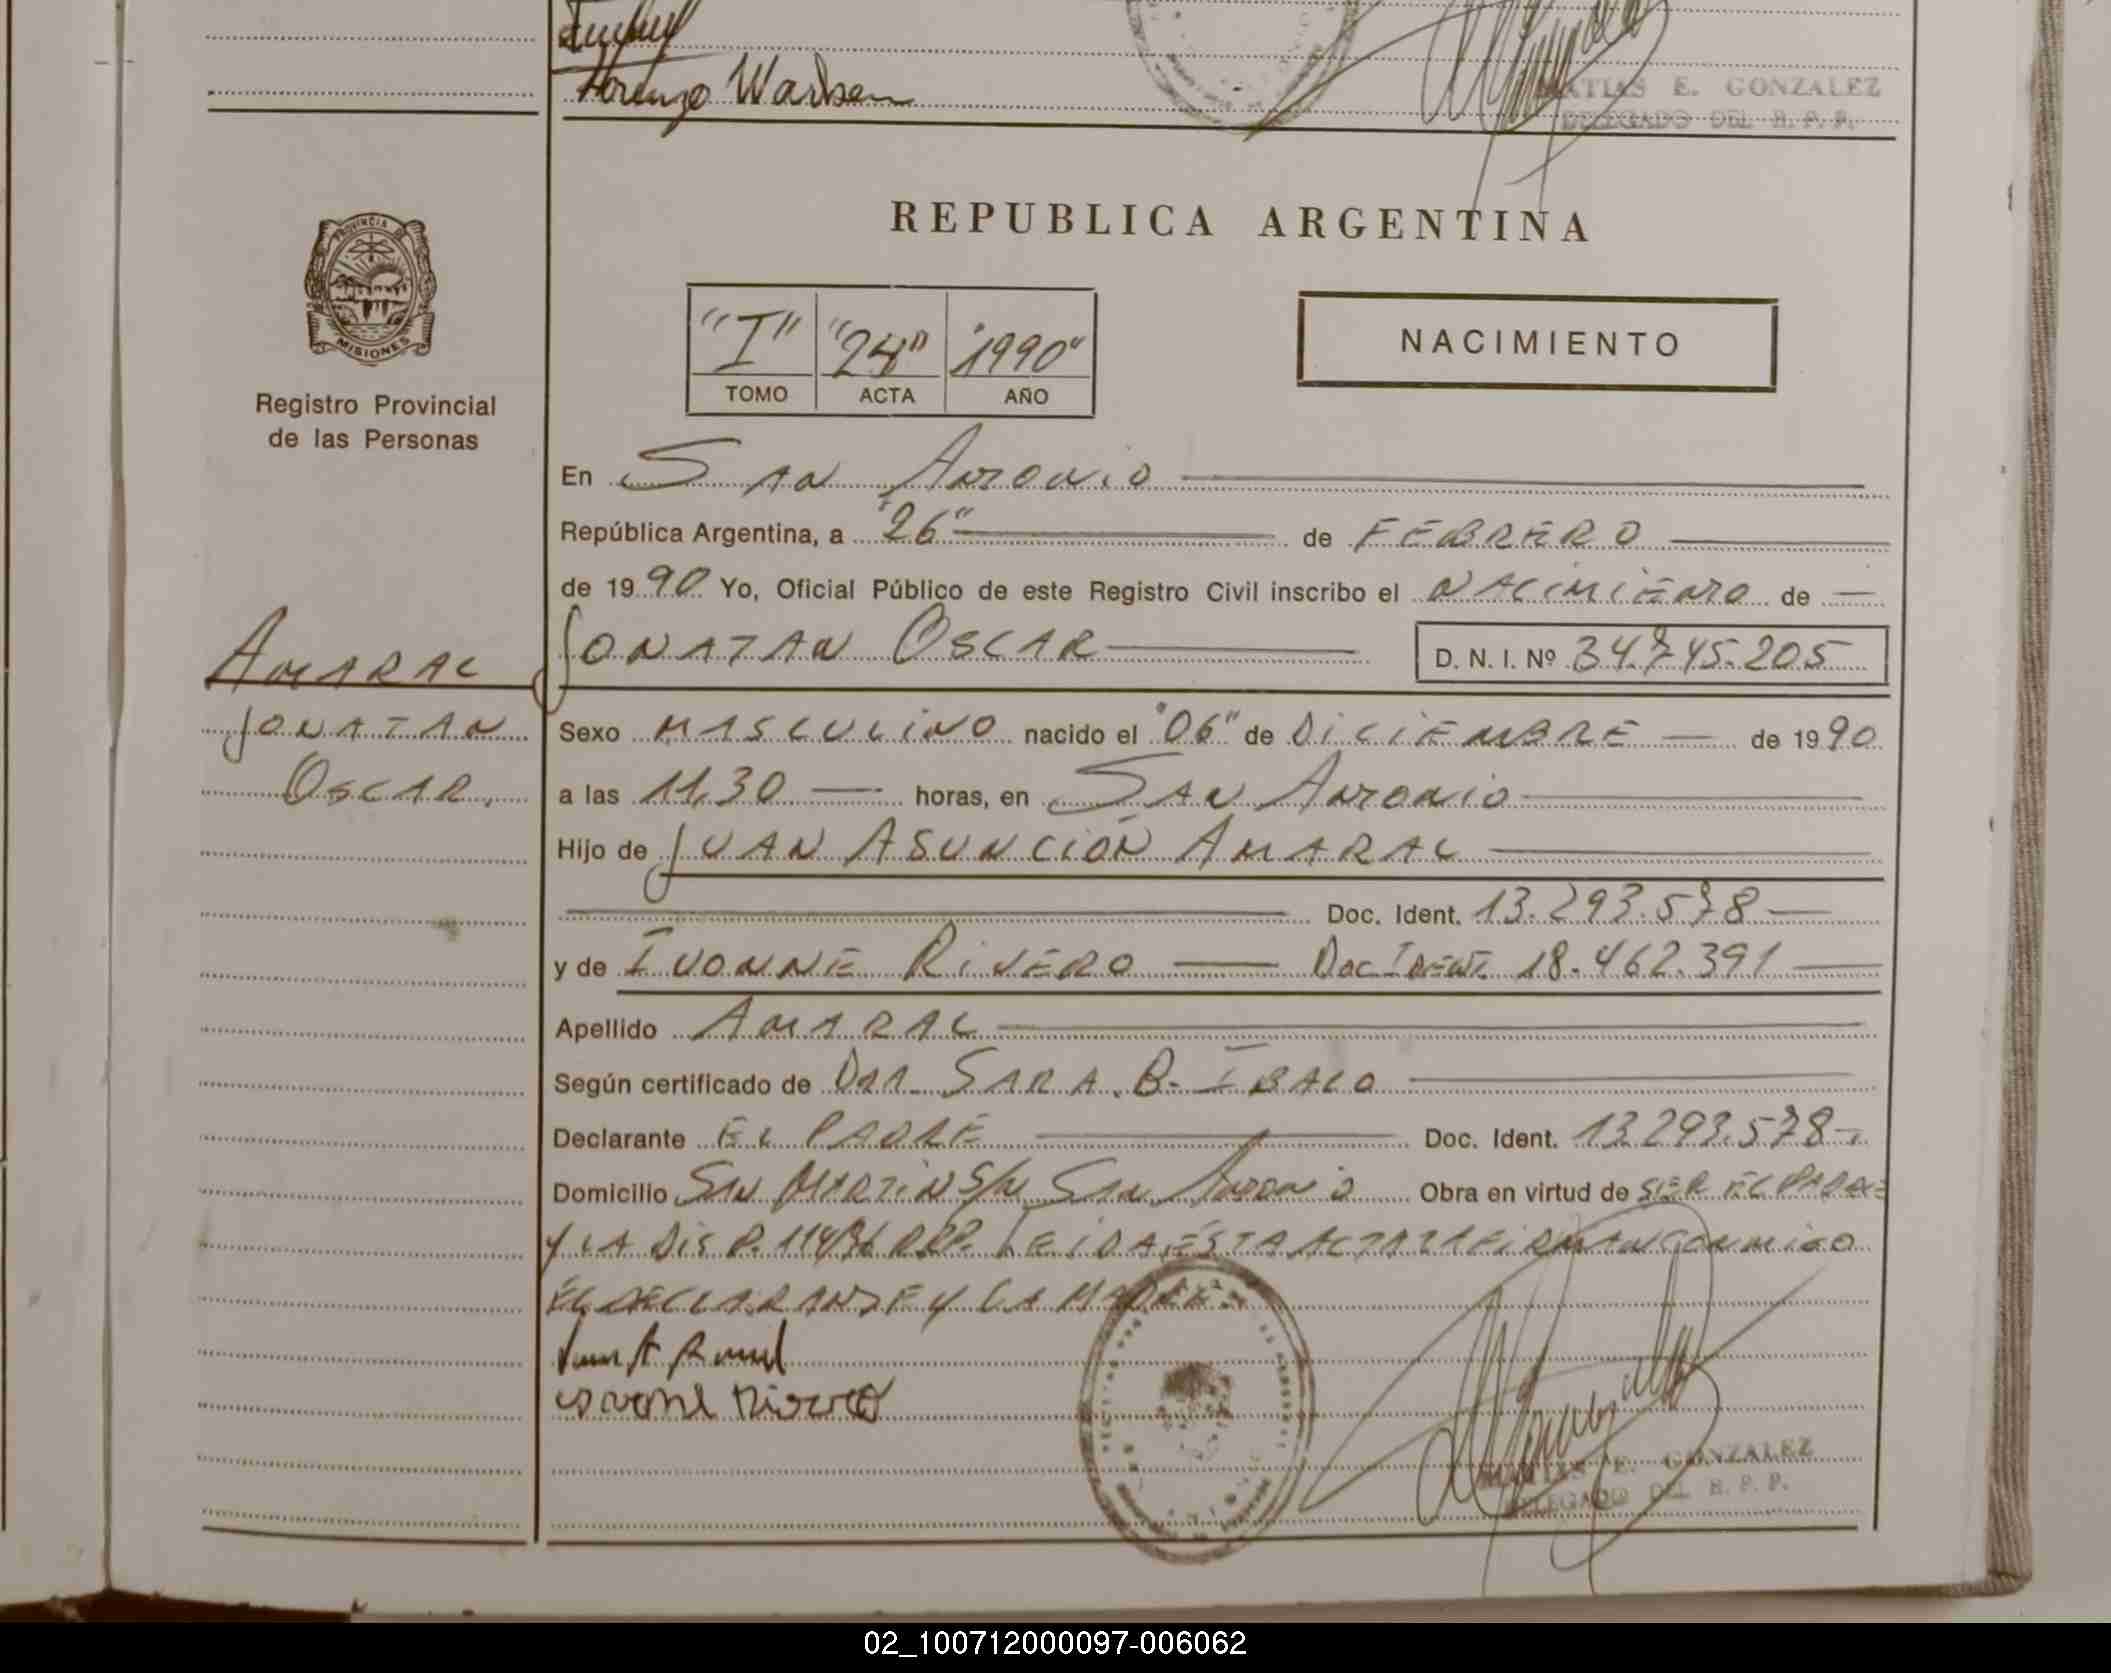 Lorenzo Warken
MATIAS E. GONZALEZ
DELEGADO DEL R. P. P.
PROVINCIA DE
MISIONES
Registro Provincial
de las Personas
REPUBLICA ARGENTINA
"I" "24" "1990"
TOMO ACTA AÑO
NACIMIENTO
En SAN ANTONIO
República Argentina, a "26" de FEBRERO
de 1990 Yo, Oficial Público de este Registro Civil inscribo el NACIMIENTO de
JONATAN OSCAR D. N. I. Nº 34.745.205
AMARAL
JONATAN
OSCAR.
Sexo MASCULINO nacido el "06" de DICIEMBRE de 1990
a las 11,30 horas, en SAN ANTONIO
Hijo de JUAN ASUNCIÓN AMARAL
Doc. Ident. 13.293.578
y de IVONNE RIVERO DOC IDENT 18.462.391
Apellido AMARAL
Según certificado de DRA. SARA B. IBALO
Declarante EL PADRE Doc. Ident. 13.293.578
Domicilio SAN MARTIN S/N SAN ANTONIO Obra en virtud de SER EL PADRE
Y LA DISP. RPP. LEIDA ESTA ACTA LA FIRMAN CONMIGO
EL DECLARANTE Y LA MADRE.
MATIAS E. GONZALEZ
DELEGADO DEL R. P. P.
02_100712000097-006062